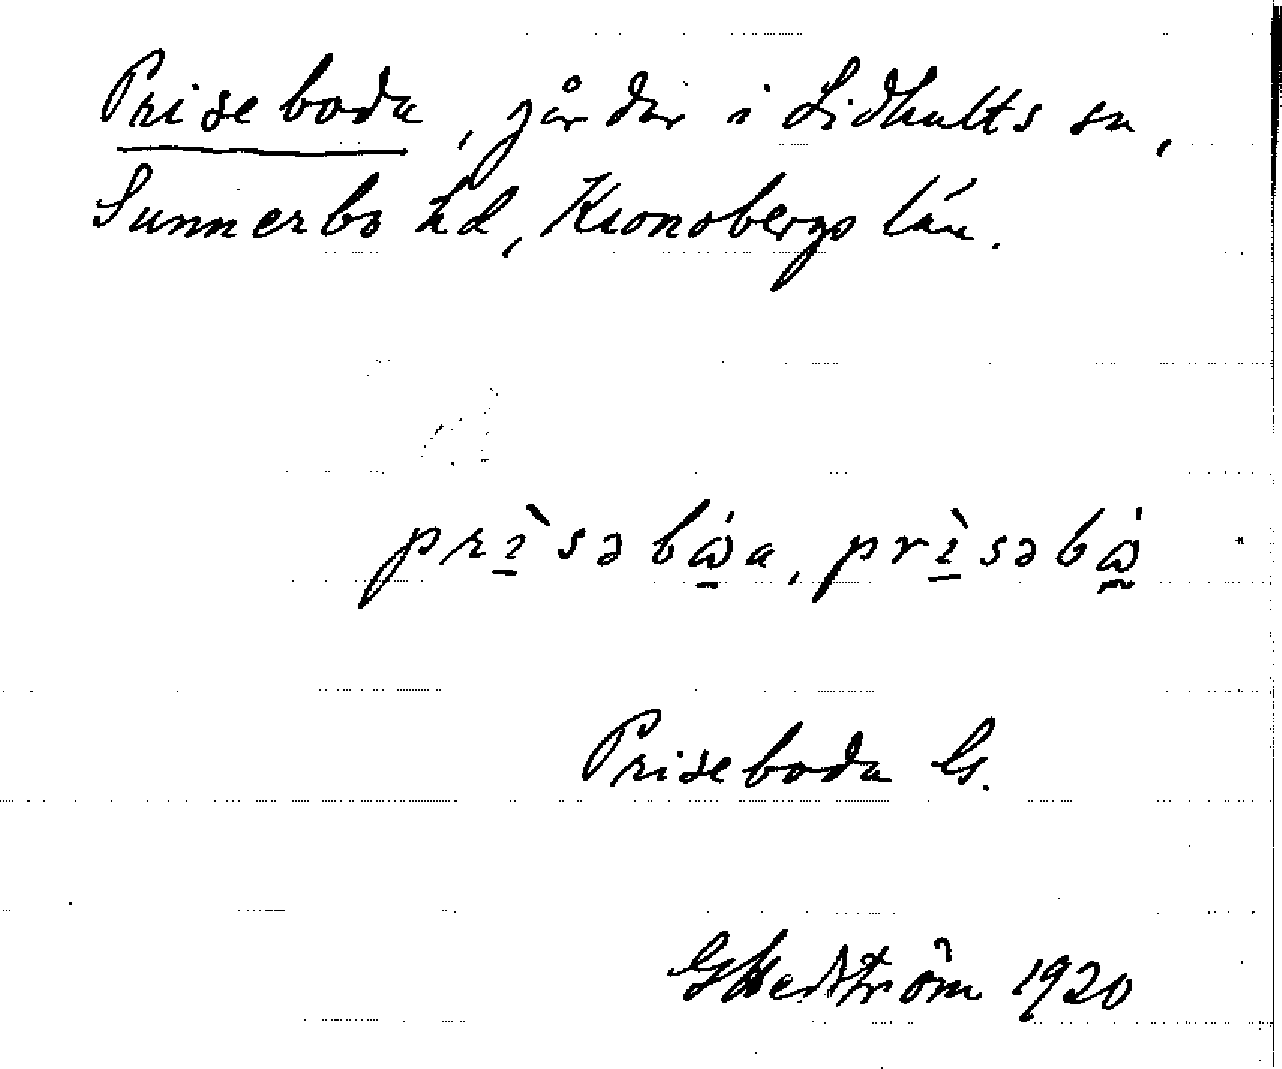 Priseboda, gårdar i Lidhults sn,
Sunnerbo hd, Kronobergs län.
prìsəbω̇a, prìsəbω̇
Priseboda G.
GHedström 1920